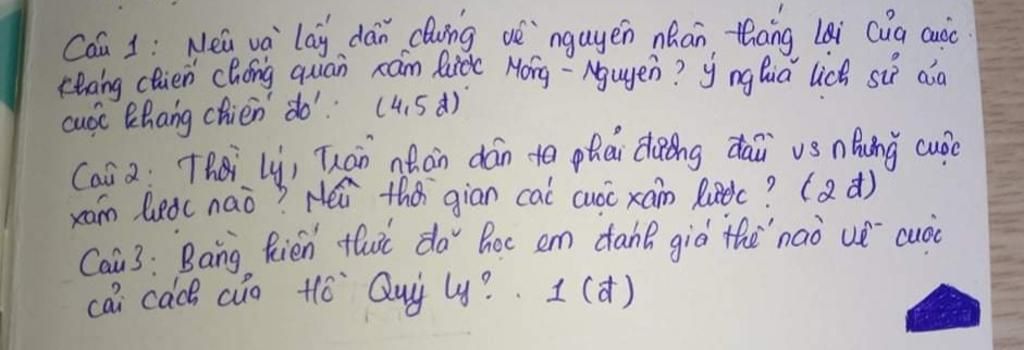 Câu 1: Nêu và lấy dẫn chứng về nguyên nhân thắng lợi của cuộc
kháng chiến chống quân xâm lược Mông - Nguyên? Ý nghĩa lịch sử của
cuộc kháng chiến đó? (4,5 đ)
Câu 2: Thời Lý, Trần nhân dân ta phải đương đầu vs những cuộc
xâm lược nào? Nêu thời gian các cuộc xâm lược? (2 đ)
Câu 3: Bằng kiến thức đã học em đánh giá thế nào về cuộc
cải cách của Hồ Quý Ly? . 1 (đ)